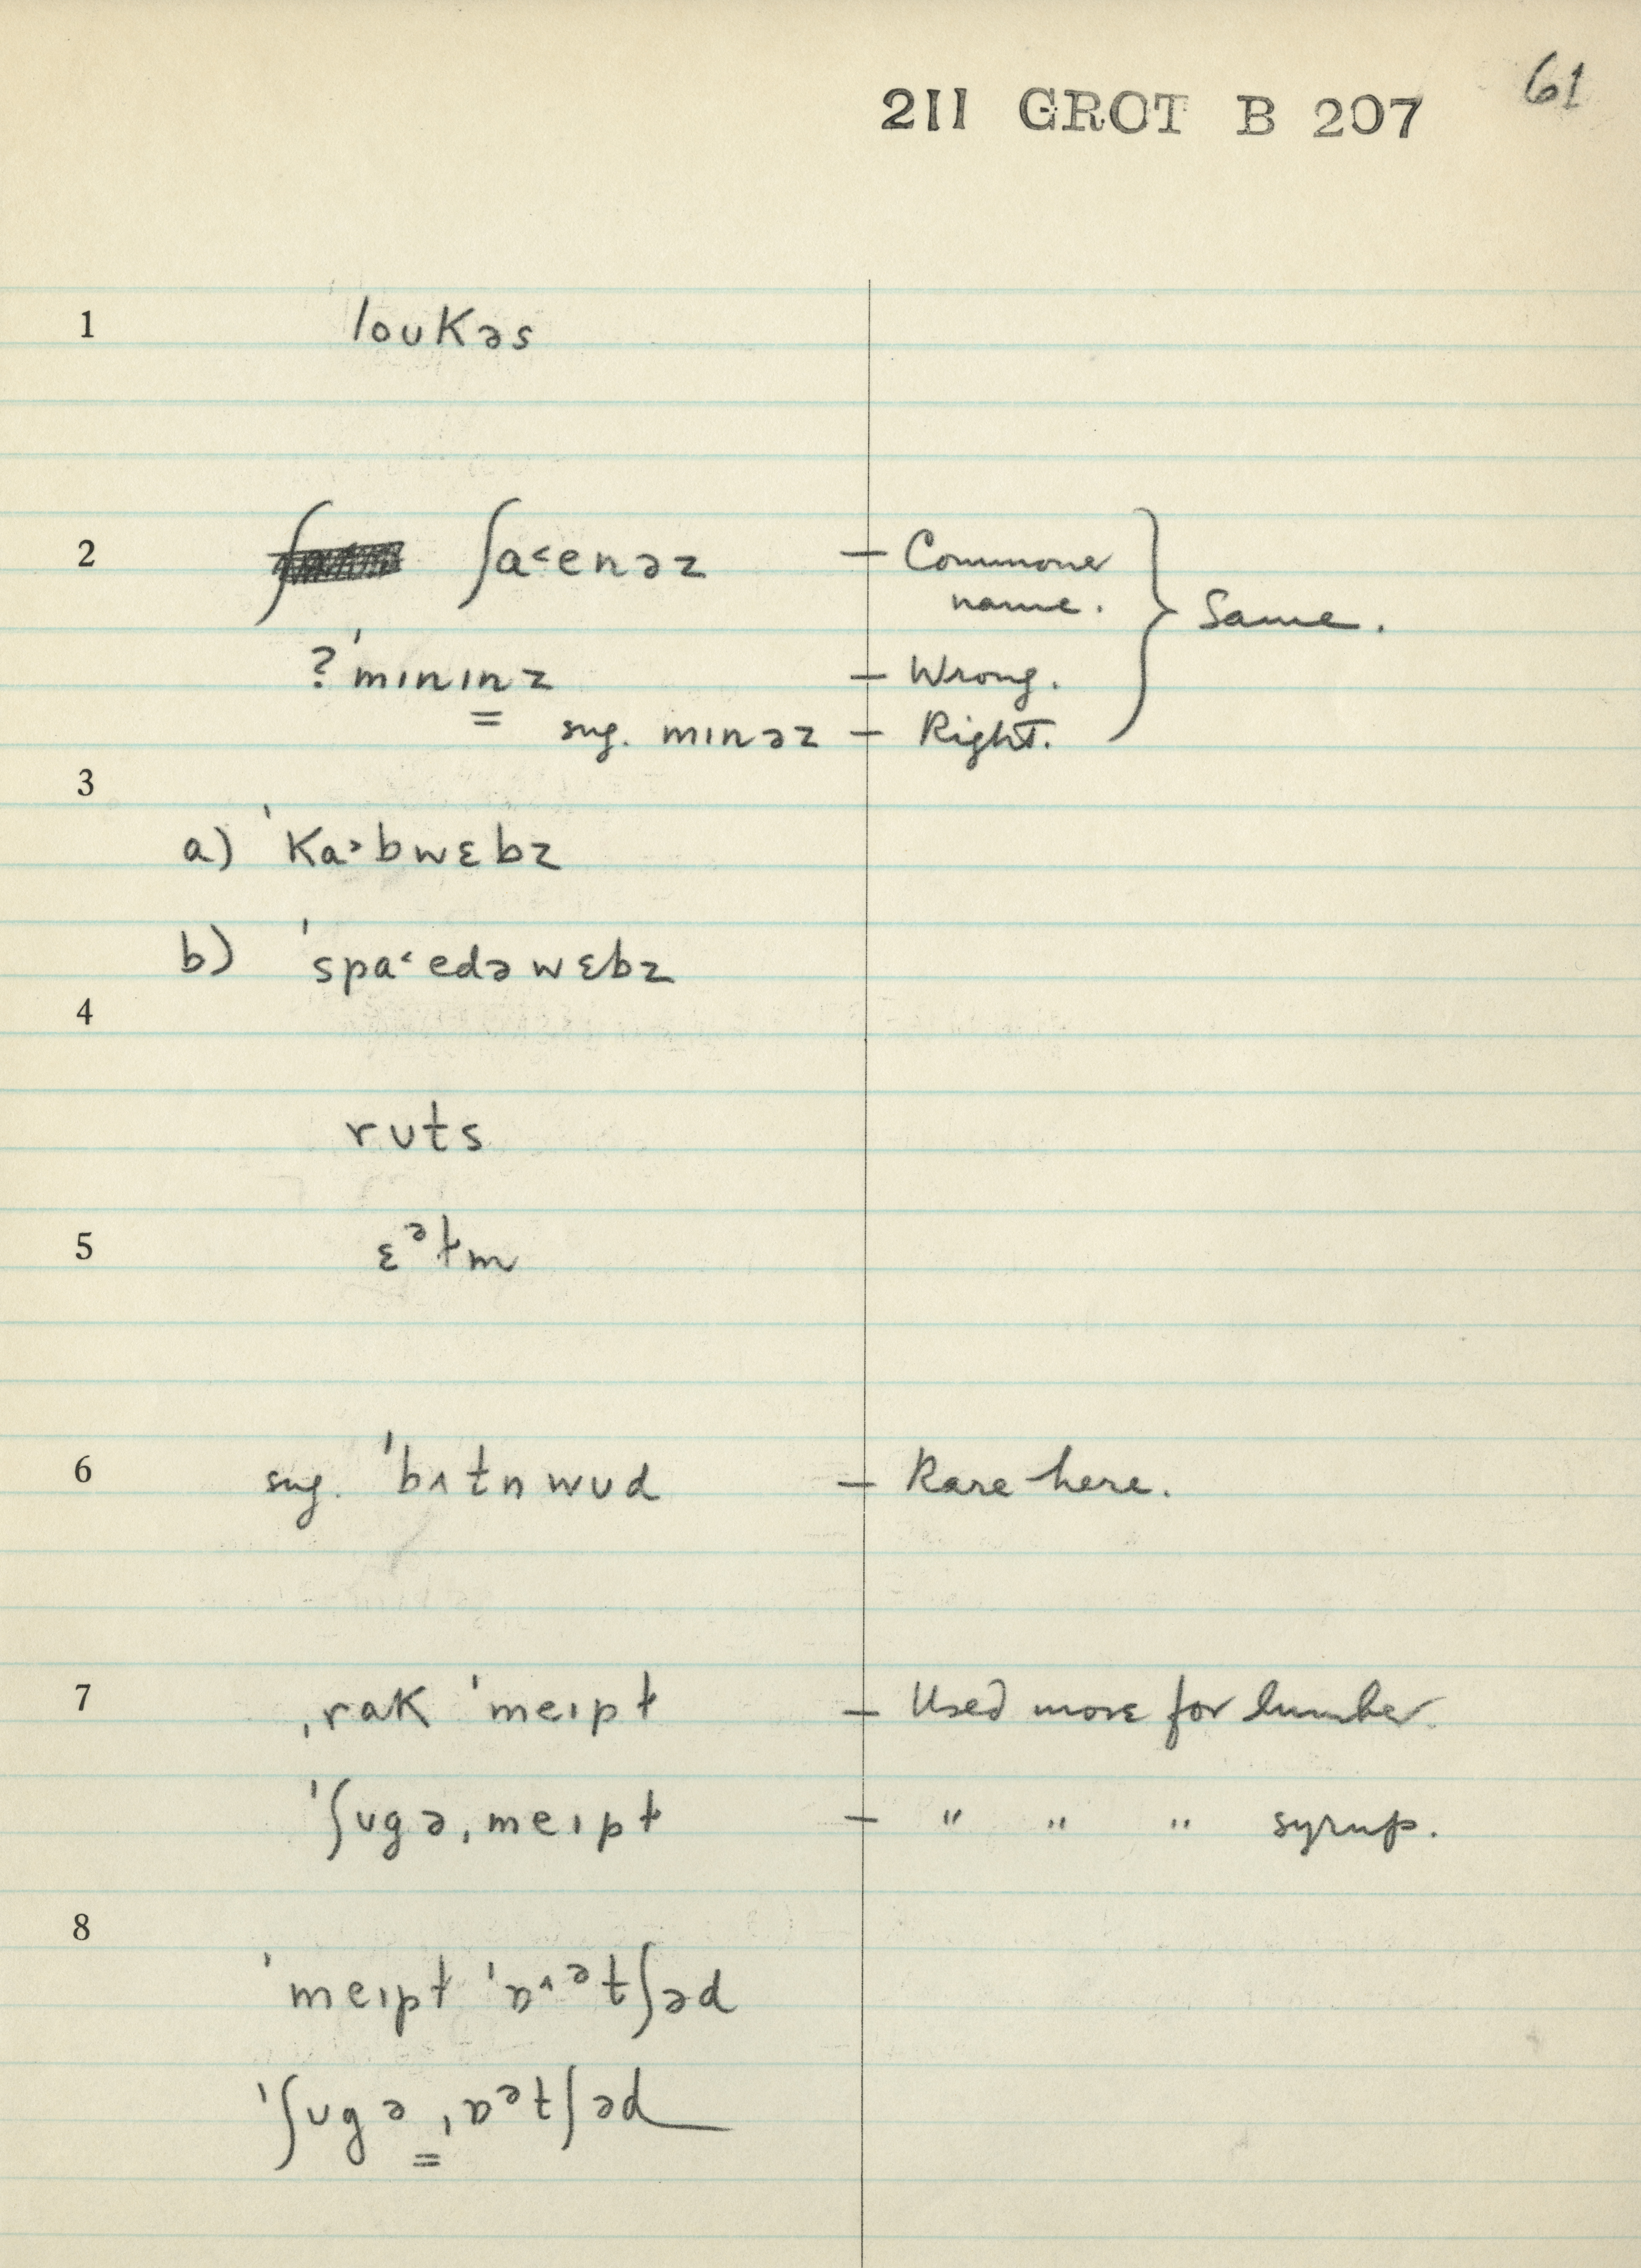 211 GROT B 207 61
1 loukəs
2 ʃa˂enəz — Commoner
name.
} Same.
?ˈmɪnɪnz — Wrong.
= sug. mɪnəz — Right.
3
a) ˈka˃bwɛbz
b) ˈspa˂edəwɛbz
4
ruts
5 ɛᵊɫm
6 sug. ˈbʌtnwud — Rare here.
7 ˌrak ˈmeɪpɫ — Used more for lumber.
ˈʃugəˌmeɪpɫ — " " " syrup.
8
ˈmeɪpɫ ˈɒ^ᵊtʃəd
ˈʃugəˌɒᵊtʃəd
=